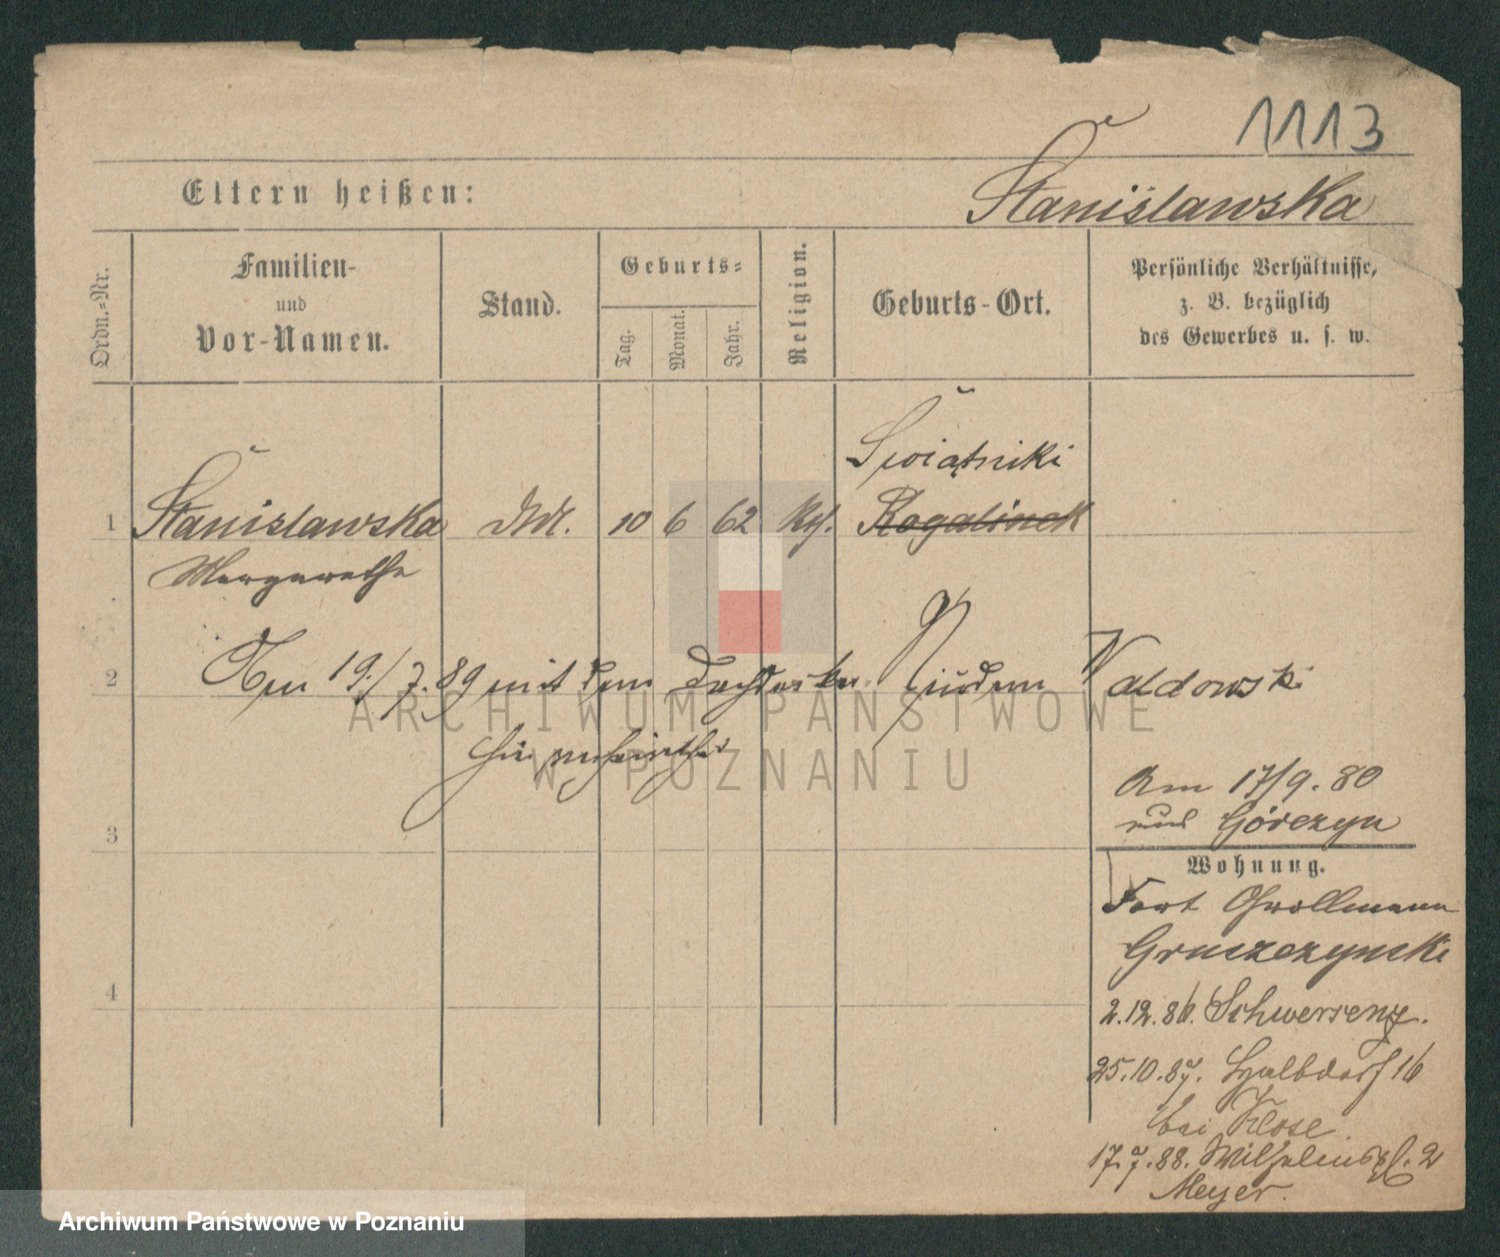 1113
Stanislawska
Eltern heißen:
Ordn.-Nr.
Familien-
und
Vor-Namen.
Stand.
Geburts-
Tag.
Monat.
Jahr.
Religion.
Geburts-Ort.
Persönliche Verhältnisse,
z. B. bezüglich
des Gewerbes u. s. w.
Świątniki
1 Stanislawska 10 6 62 Rogalinek
Margarethe
2 Am 19./7.89 mit dem Valdowski
hier verheirathet
ARCHIWUM PAŃSTWOWE
W POZNANIU
Am 17/9.80
aus Górczyn
3
Wohnung.
Fort Grollmann
Gruszczynski
4
2.12.86. Schwersenz.
25.10.87. Halbdorf 16
bei Klose.
17.7.88. Wilhelmspl. 2
Meyer.
Archiwum Państwowe w Poznaniu